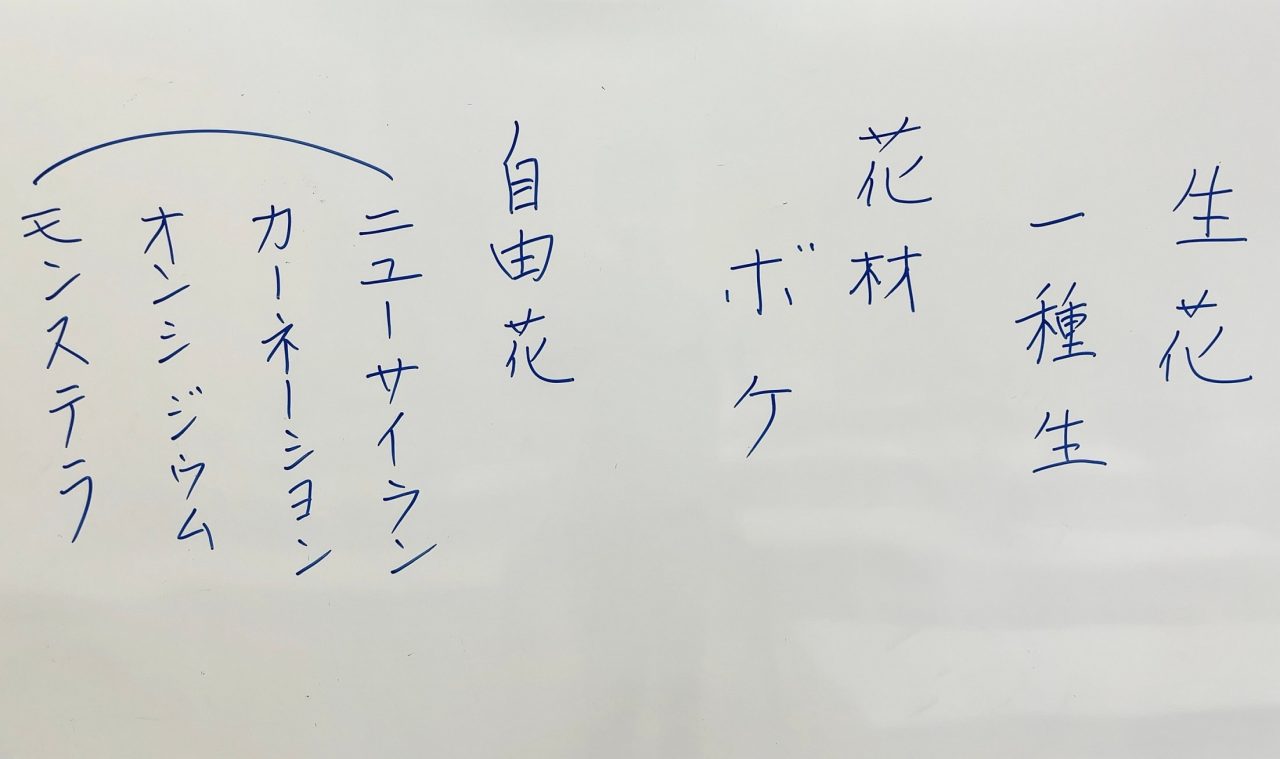 生花
一種生
花材
ボケ
自由花
ニューサイラン
カーネーション
オンシジウム
モンステラ